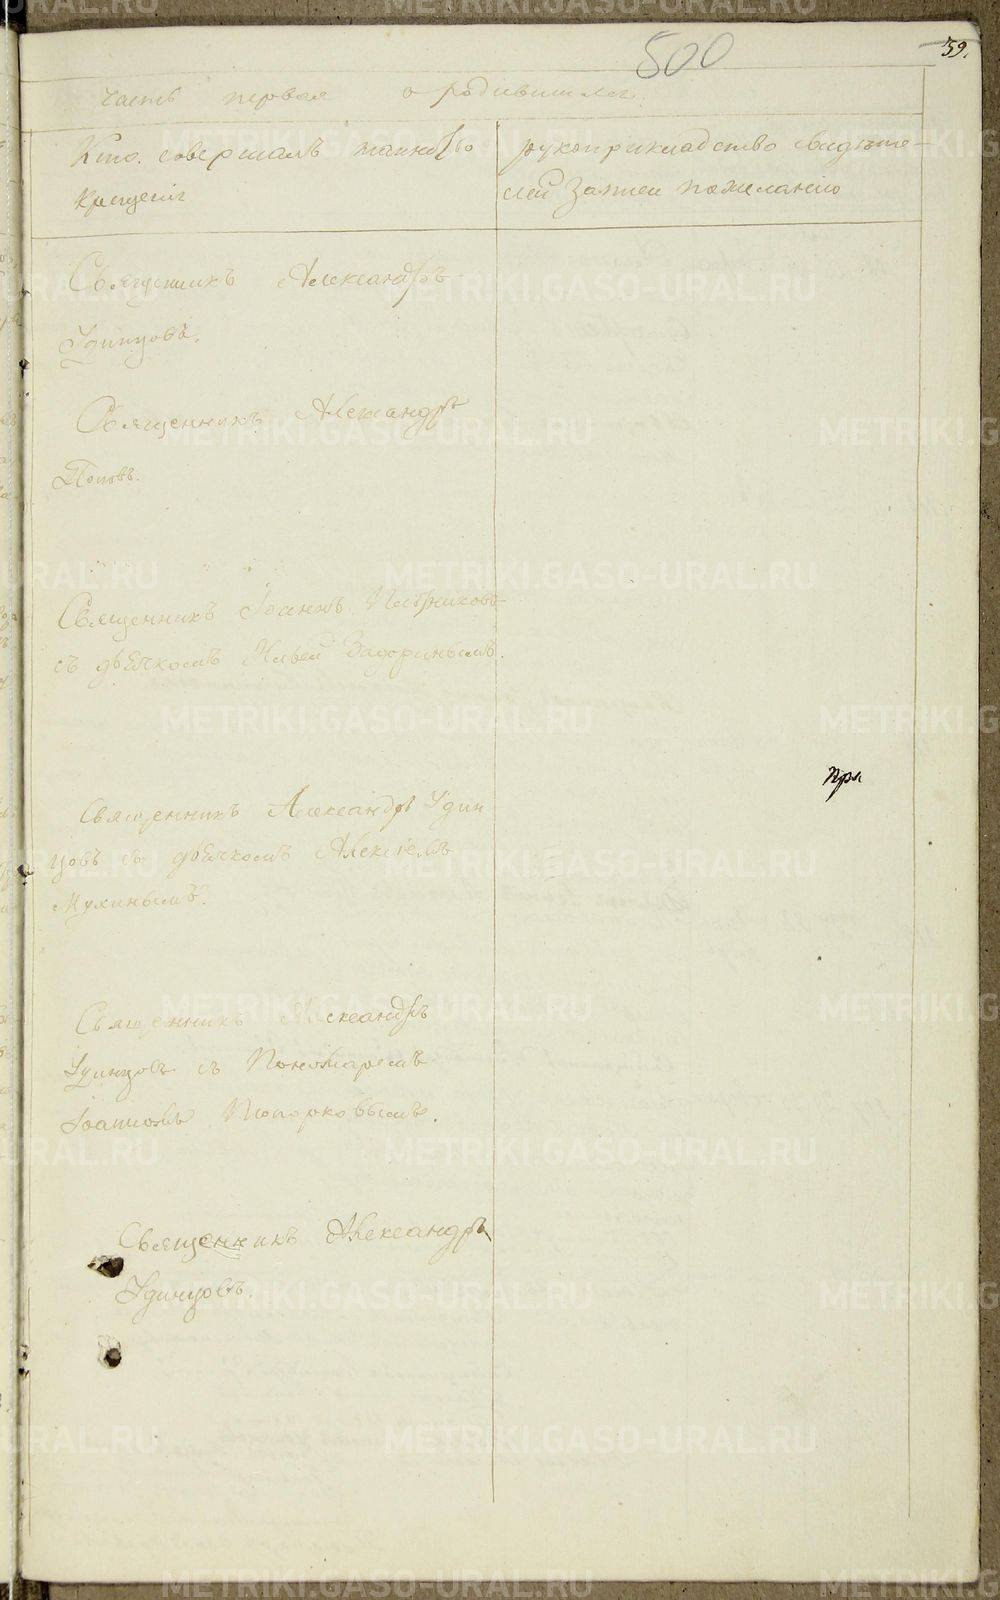 500
59.
Часть первая о родившихся.
Кто совершалъ таинство
крещенія
рукоприкладство свидѣте-
лей записи по желанію
Священникъ Александръ
Удинцовъ.
Священникъ Александръ
Поповъ.
Священникъ Іоаннъ
съ дьячкомъ Ильей Задоринымъ.
Священникъ Александръ Удин
цовъ съ дьячкомъ Алексіемъ
Мухинымъ.
Священникъ Александръ
Удинцовъ съ Пономаремъ
Іоанномъ Топорковымъ.
Священникъ Александръ
Удинцовъ.
При
METRIKI.GASO-URAL.RU